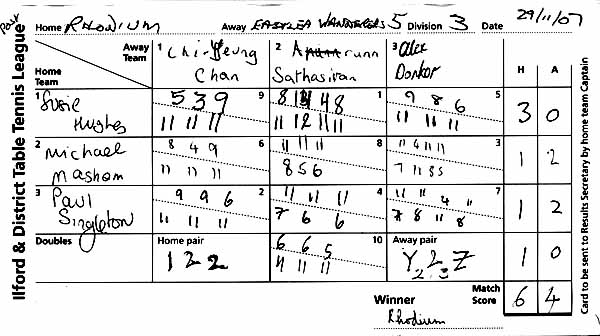 Ilford & District Table Tennis League
Home RHODIUM Away EASTLEA WANDERERS 5 Division 3 Date 29/11/07
Away Team 1 Chi-Yeung Chan 2 Arunn Sathasivan 3 Alex Dankor H A
Home Team
1 Susie Hughes 5 3 9 9 8 14 4 8 1 9 8 6 5 3 0
11 11 11 11 12 11 11 11 11 11
2 Michael Masham 8 4 9 6 11 11 11 8 11 4 11 11 3 1 2
11 11 11 8 5 6 7 11 8 5
3 Paul Singleton 9 9 6 2 11 11 11 4 11 11 4 11 7 1 2
11 11 11 7 6 6 8 11 8
Doubles Home pair 6 6 5 10 Away pair 1 0
1 2 2 11 11 11 2 . 3
Winner Match Score 6 4
Rhodium
Card to be sent to Results Secretary by home team Captain